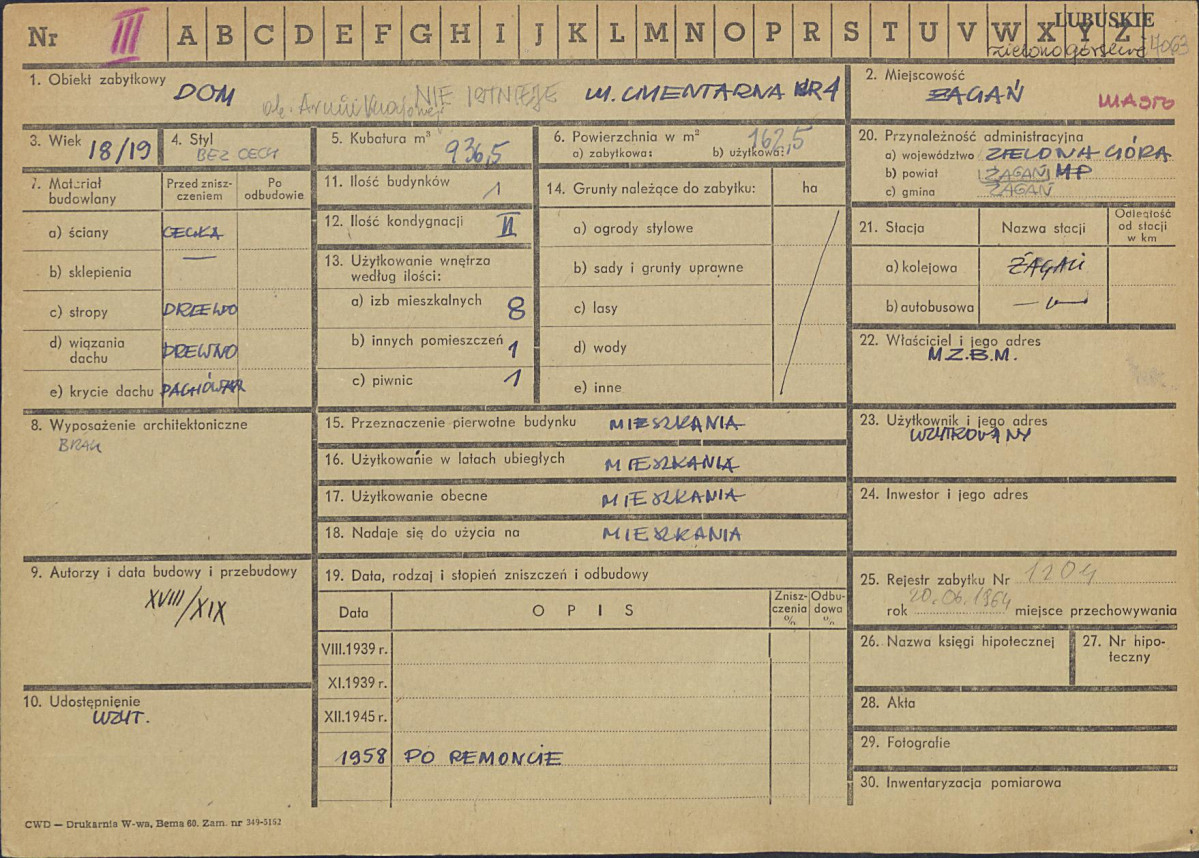 Nr III A B C D E F G H I J K L M N O P R S T U V W X Y Z LUBUSKIE
zielonogórskie 4063
1. Obiekt zabytkowy DOM NIE ISTNIEJE UL. CMENTARNA NR 1
ob. Armii Krajowej
2. Miejscowość ŻAGAŃ MIASTO
3. Wiek 18/19
4. Styl BEZ CECH
5. Kubatura m³ 936,5
6. Powierzchnia w m² 162,5
a) zabytkowa: b) użytkowa:
20. Przynależność administracyjna
a) województwo ZIELONA GÓRA
b) powiat ŻAGAŃ MP
c) gmina ŻAGAŃ
7. Materiał budowlany
Przed zniszczeniem
Po odbudowie
a) ściany CEGŁA
b) sklepienia —
c) stropy DRZEWO
d) wiązania dachu DREWNO
e) krycie dachu DACHÓWKA
11. Ilość budynków 1
12. Ilość kondygnacji II
13. Użytkowanie wnętrza
według ilości:
a) izb mieszkalnych 8
b) innych pomieszczeń 1
c) piwnic 1
14. Grunty należące do zabytku: ha
a) ogrody stylowe
b) sady i grunty uprawne
c) lasy
d) wody
e) inne
21. Stacja Nazwa stacji Odległość od stacji w km
a) kolejowa ŻAGAŃ
b) autobusowa — " —
22. Właściciel i jego adres
M.Z.B.M.
8. Wyposażenie architektoniczne
BRAK
15. Przeznaczenie pierwotne budynku MIESZKANIA
16. Użytkowanie w latach ubiegłych MIESZKANIA
17. Użytkowanie obecne MIESZKANIA
18. Nadaje się do użycia na MIESZKANIA
23. Użytkownik i jego adres
UŻYTKOWANY
24. Inwestor i jego adres
9. Autorzy i data budowy i przebudowy
XVIII/XIX
10. Udostępnienie
UŻYT.
19. Data, rodzaj i stopień zniszczeń i odbudowy
Data OPIS Zniszczenia % Odbudowa %
VIII.1939 r.
XI.1939 r.
XII.1945 r.
1958 PO REMONCIE
25. Rejestr zabytku Nr 1204
rok 20.06.1964 miejsce przechowywania
26. Nazwa księgi hipotecznej
27. Nr hipoteczny
28. Akta
29. Fotografie
30. Inwentaryzacja pomiarowa
CWD — Drukarnia W-wa, Bema 60. Zam. nr 349-5162